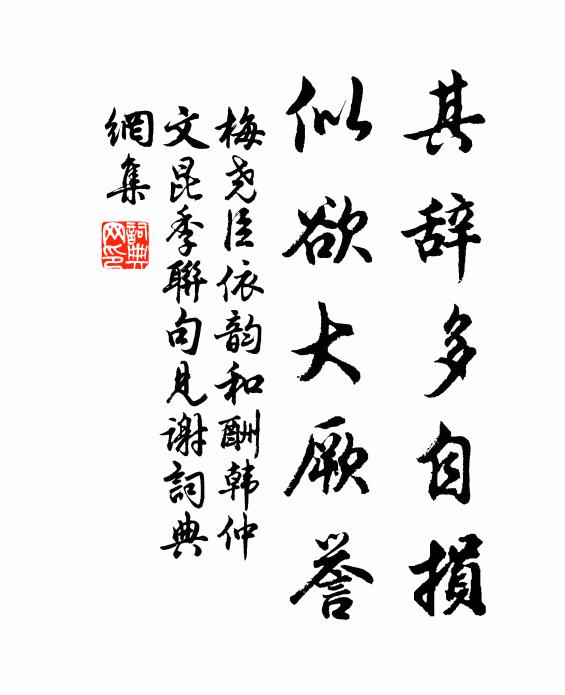 其辞多自损
似欲大厥誉
梅尧臣依韵和酬韩仲
文昆季聯句见谢詞典
網集
詞典网印